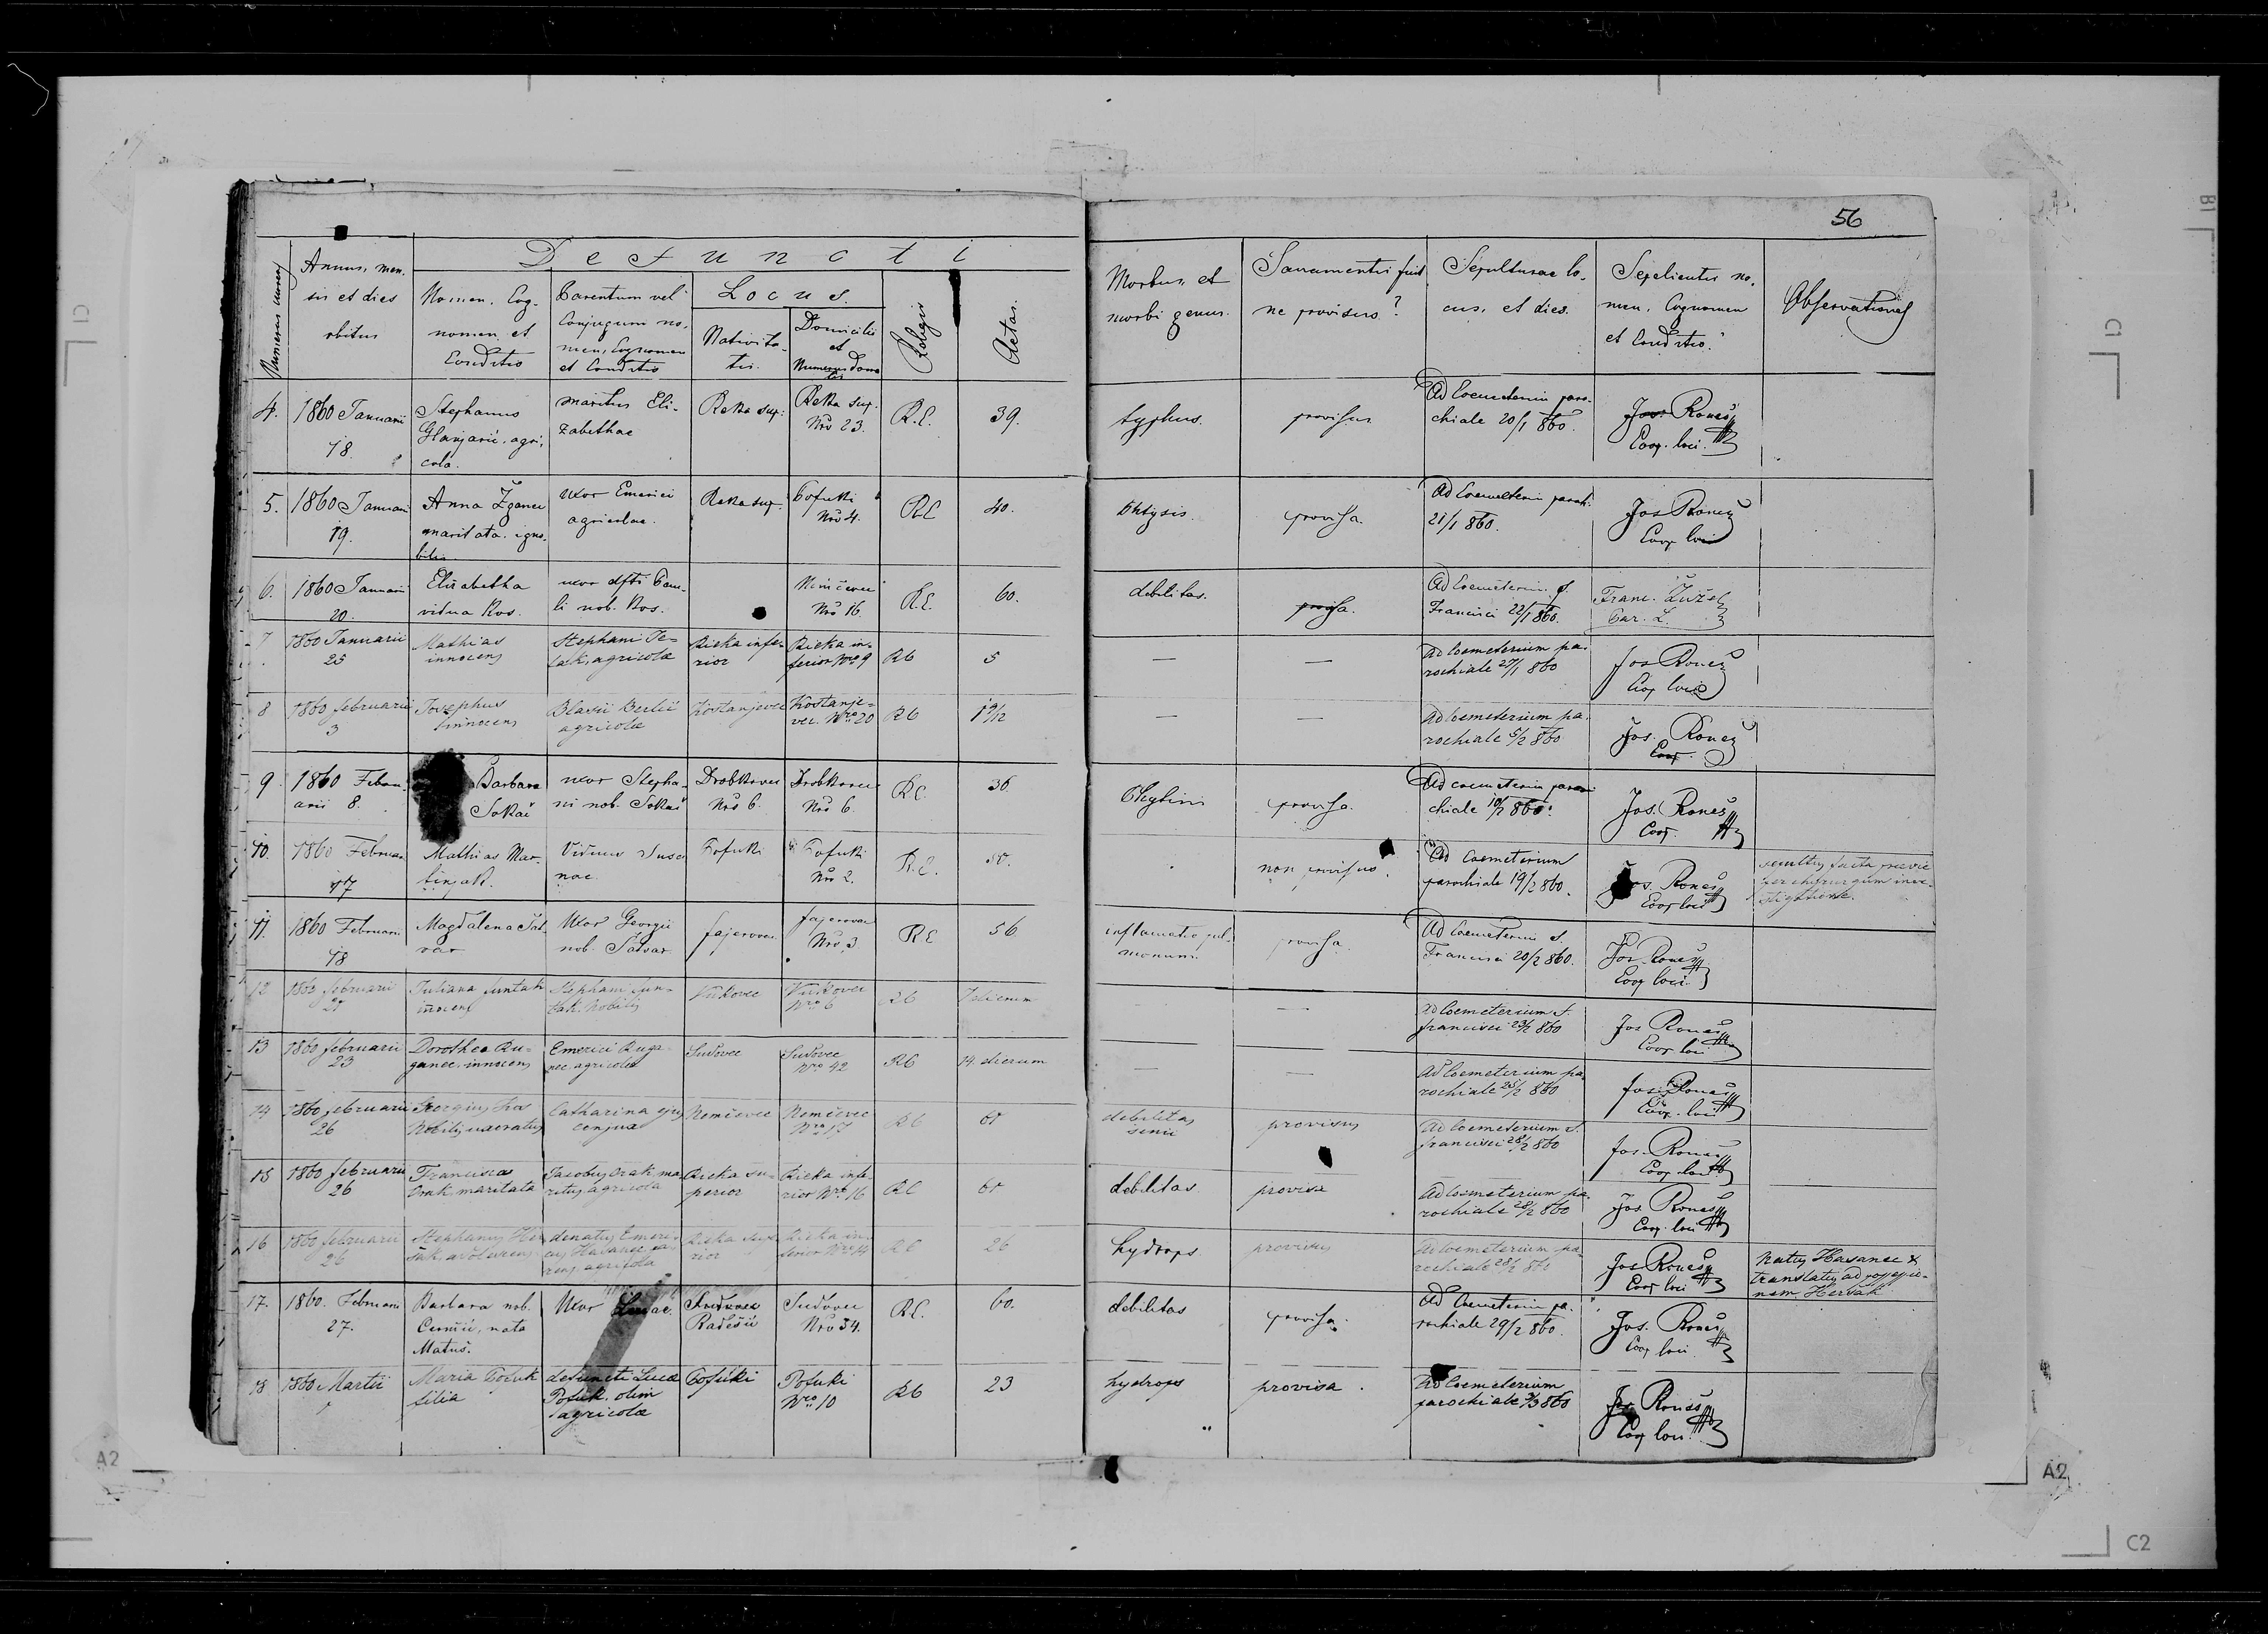 56
Defuncti
Numerus currens
Annus, men-
sis et dies
obitus
Nomen, Cog-
nomen et
Conditio
Parentum vel
Conjugum no-
men, Cognomen
et Conditio
Locus.
Nativita-
tis.
Domicilii
et
Numerus Domus
Religio
Aetas.
Morbus, et
morbi genus.
Sacramentis fuit
ne provisus?
Sepulturae lo-
cus, et dies.
Sepelientis no-
men, Cognomen
et Conditio.
Observationes
4. 1860 Januarii
18.
Stephanus
agri-
cola.
maritus Eli-
zabethae
Reka sup:
Reka sup.
Nro 23.
R.C.
39.
typhus.
provisus
Ad Coemeterium paro-
chiale 20/1 860.
Jos. Roneš
Coop. loci.
5. 1860 Januarii
19.
Anna Žganec
maritata. igno-
bilis
uxor Emerici
agricolae.
Reka sup.
Pofuki
Nro 4.
RC
40.
Phtysis.
provisa.
Ad Coemeterium paroch.
21/1 860.
Jos Roneš
Coop loci
6. 1860 Januarii
20.
Elisabetha
vidua Kos.
uxor dfti Pau-
li nob. Kos.
Nemčevec
Nro 16.
R.C.
60.
debilitas.
provisa.
Ad Coemeterium S.
Francisci 22/1 860.
Franc. Žužel
Par. L.
7 1860 Januarii
25
Mathias
innocens
Stephani
agricolae
Rieka infe-
rior
Rieka in-
ferior Nro 9
RC
5
—
—
Ad Coemeterium pa-
rochiale 27/1 860
Jos Roneš
Coop loci
8 1860 februarii
3
Josephus
innocens
Blasii Berlić
agricolae
Kostanjevec
Kostanje-
vec. Nro 20
RC
1 9/12
—
—
Ad Coemeterium pa-
rochiale 5/2 860
Jos. Roneš
Coop.
9 1860 Febru-
arii 8.
Barbara
Sokač
uxor Stepha-
ni nob. Sokač
Drobkovec
Nro 6.
Drobkovec
Nro 6.
RC.
36
provisa.
Ad coemeterium paro-
chiale 10/2 860.
Jos. Roneš
Coop.
10. 1860 Februar.
17
Mathias Mar-
tinjak.
Viduus Susa-
nae.
Pofuki
Pofuki
Nro 2.
R.C.
50.
non provisus
Ad Coemeterium
parochiale 19/2 860.
Jos. Roneš
Coop loci
sepultus facta praevie
per chyrurgum inve-
stigatione.
11. 1860 Februar.
18
Magdalena Šat-
var
Uxor Georgii
nob. Šatvar
fajerovec
fajerovec
Nro 3
RC
56
inflamatio pul-
monum.
provisa.
Ad Coemeterium S.
Francisci 20/2 860.
Jos. Roneš
Coop loci.
12 1860 februarii
Juliana
innocens
Stephani
nobilis
Vukovec
Vukovec
Nro 6
RC
7 dierum
—
Ad Coemeterium S.
francisci 23/2 860
Jos Roneš
Coop loci
13 1860 februarii
23
Dorothea Ru-
ganec. innocens
Emerici Ruga-
nec agricolae
Sudovec
Sudovec
Nro 42
RC
14. dierum
—
—
Ad Coemeterium pa-
rochiale 25/2 860
Jos. Roneš
Coop. loci
14 1860 februarii
26
Georgius Kos
Nobilis uxoratus
Catharina ejus
conjux
Nemčevec
Nemčevec
Nro 17
RC
debilitas
senii
provisus
Ad Coemeterium S.
francisci 28/2 860
Jos. Roneš
Coop loci
15 1860 februarii
26
Francisca
Orak, maritata
Jacobus Orak, ma-
ritus, agricola
Rieka su-
perior
Rieka infe-
rior Nro 16
RC
debilitas
provisa
Ad Coemeterium pa-
rochiale 28/2 860
Jos. Roneš
Coop. loci
16 1860 februarii
26
Stephanus Her-
šak, adolescens
denatus Emeri-
cus Havanec pa-
rens, agricola
Rieka supe-
rior
Rieka in-
ferior Nro 14
RC
26
hydrops
provisus
Ad Coemeterium pa-
rochiale 28/2 860
Jos Roneš
Coop loci
natus Havanec &
translatus ad possessio-
nem Heršak
17. 1860. Februarii
27.
Barbara nob.
nata
Matuš.
Uxor Lucae.
Sudovec
Radešić
Sudovec
Nro 34.
RC.
60.
debilitas
provisa.
Ad Coemeterium pa-
rochiale 29/2 860.
Jos. Roneš
Coop loci
18 1860 Martii
1
Maria Pofuk
filia
defuncti Lucae
Pofuk, olim
agricolae
Pofuki
Pofuki
Nro 10
RC
23
hydrops
provisa.
Ad Coemeterium
parochiale 3/3 860
Jos Roneš
Coop loci.
C1
C1
B1
A2
A2
C2